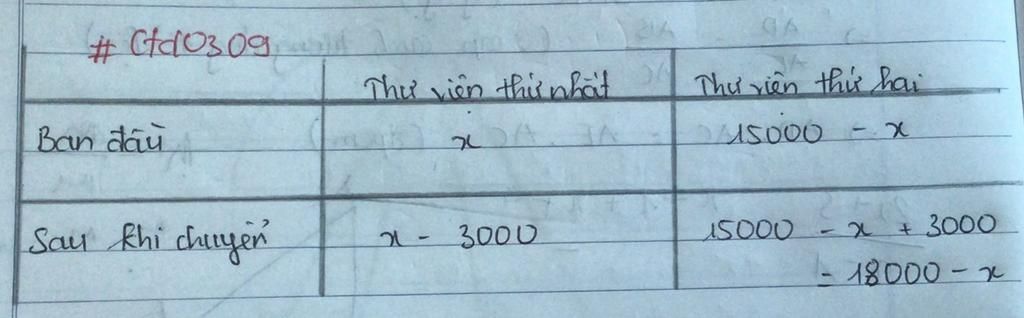 # Ctd0309
Thư viện thứ nhất Thư viện thứ hai
Ban đầu x 15000 - x
Sau khi chuyển x - 3000 15000 - x + 3000
= 18000 - x